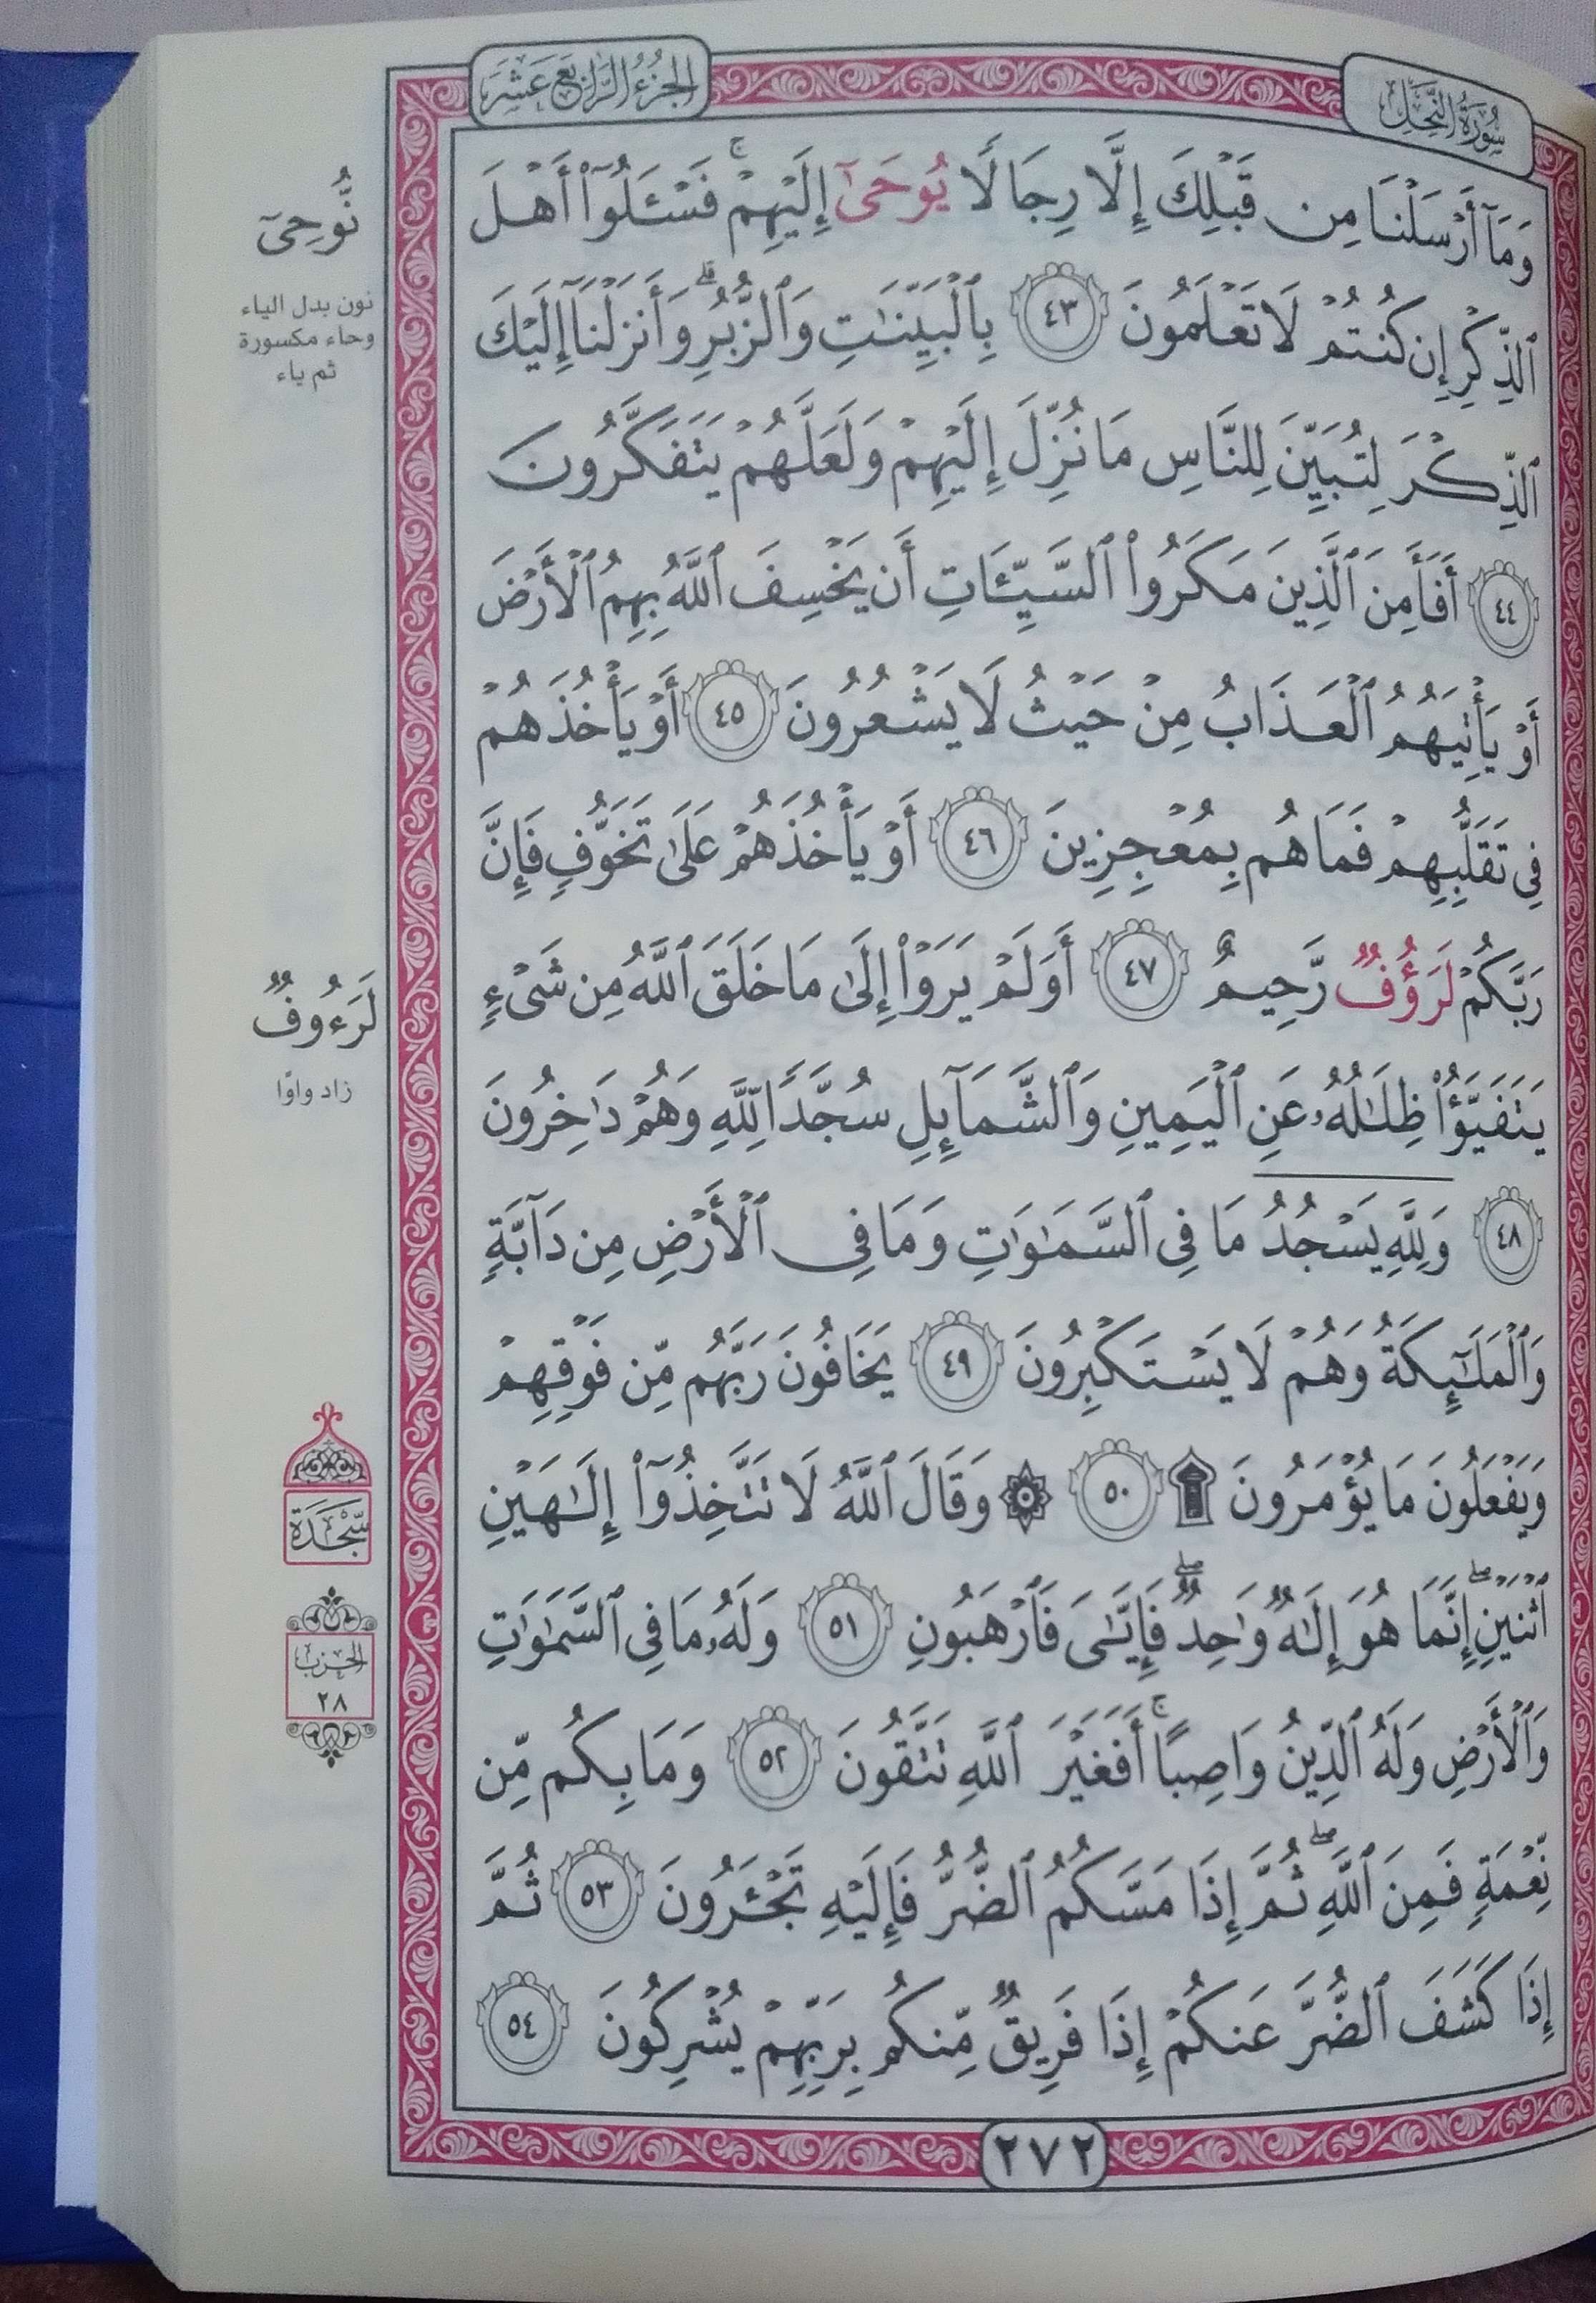 سُورَةُ النَّحْلِ
الجُزْءُ الرَّابِعَ عَشَرَ
وَمَآ أَرْسَلْنَا مِن قَبْلِكَ إِلَّا رِجَالًا يُوحَىٰٓ إِلَيْهِمْ ۚ فَسْـَٔلُوٓا۟ أَهْلَ
ٱلذِّكْرِ إِن كُنتُمْ لَا تَعْلَمُونَ ٤٣ بِٱلْبَيِّنَـٰتِ وَٱلزُّبُرِ ۗ وَأَنزَلْنَآ إِلَيْكَ
ٱلذِّكْرَ لِتُبَيِّنَ لِلنَّاسِ مَا نُزِّلَ إِلَيْهِمْ وَلَعَلَّهُمْ يَتَفَكَّرُونَ
٤٤ أَفَأَمِنَ ٱلَّذِينَ مَكَرُوا۟ ٱلسَّيِّـَٔاتِ أَن يَخْسِفَ ٱللَّهُ بِهِمُ ٱلْأَرْضَ
أَوْ يَأْتِيَهُمُ ٱلْعَذَابُ مِنْ حَيْثُ لَا يَشْعُرُونَ ٤٥ أَوْ يَأْخُذَهُمْ
فِى تَقَلُّبِهِمْ فَمَا هُم بِمُعْجِزِينَ ٤٦ أَوْ يَأْخُذَهُمْ عَلَىٰ تَخَوُّفٍ فَإِنَّ
رَبَّكُمْ لَرَؤُفٌ رَّحِيمٌ ٤٧ أَوَلَمْ يَرَوْا۟ إِلَىٰ مَا خَلَقَ ٱللَّهُ مِن شَىْءٍ
يَتَفَيَّؤُا۟ ظِلَـٰلُهُۥ عَنِ ٱلْيَمِينِ وَٱلشَّمَآئِلِ سُجَّدًا لِّلَّهِ وَهُمْ دَٰخِرُونَ
٤٨ وَلِلَّهِ يَسْجُدُ مَا فِى ٱلسَّمَـٰوَٰتِ وَمَا فِى ٱلْأَرْضِ مِن دَآبَّةٍ
وَٱلْمَلَـٰٓئِكَةُ وَهُمْ لَا يَسْتَكْبِرُونَ ٤٩ يَخَافُونَ رَبَّهُم مِّن فَوْقِهِمْ
وَيَفْعَلُونَ مَا يُؤْمَرُونَ ۩ ٥٠ ۞ وَقَالَ ٱللَّهُ لَا تَتَّخِذُوٓا۟ إِلَـٰهَيْنِ
ٱثْنَيْنِ ۖ إِنَّمَا هُوَ إِلَـٰهٌ وَٰحِدٌ ۖ فَإِيَّـٰىَ فَٱرْهَبُونِ ٥١ وَلَهُۥ مَا فِى ٱلسَّمَـٰوَٰتِ
وَٱلْأَرْضِ وَلَهُ ٱلدِّينُ وَاصِبًا ۚ أَفَغَيْرَ ٱللَّهِ تَتَّقُونَ ٥٢ وَمَا بِكُم مِّن
نِّعْمَةٍ فَمِنَ ٱللَّهِ ۖ ثُمَّ إِذَا مَسَّكُمُ ٱلضُّرُّ فَإِلَيْهِ تَجْـَٔرُونَ ٥٣ ثُمَّ
إِذَا كَشَفَ ٱلضُّرَّ عَنكُمْ إِذَا فَرِيقٌ مِّنكُم بِرَبِّهِمْ يُشْرِكُونَ ٥٤
نُّوحِىٓ
نون بدل الياء
وحاء مكسورة
ثم ياء
لَرَءُوفٌ
زاد واوًا
سَجْدَة
الحزب
٢٨
٢٧٢